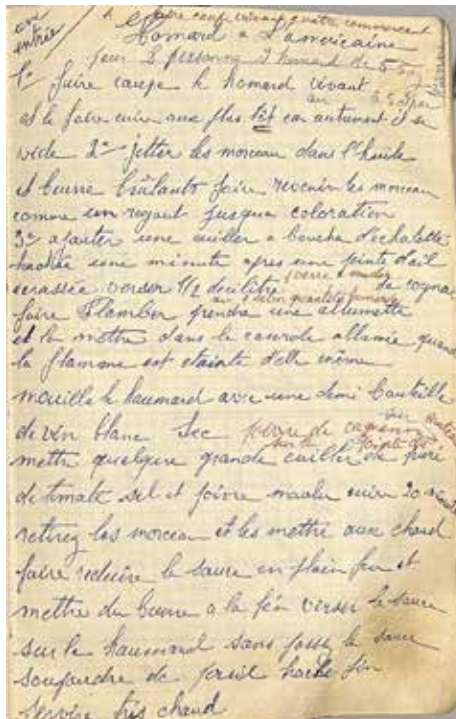 une
entrée
A faire couper vivant a votre commercant
Homard a L'américaine
pour 2 personne 1 homard de
1º faire coupe le homard vivant
et le faire cuire aux plus tôt car autrement il se
vide 2º jetter les morceau dans l'huile
et beurre brûlante faire revenir les morceau
comme un ragout jusqua coloration
3º ajouter une cuiller a bouche d'echalotte
hachée une minute apres une pointe d'ail
ecrassée verser 1/2 decilitre de cognac
faire Flamber prendre une allumette
et la mettre dans la casserole allumée quand
la flamme est etainte d'elle même
mouille le haumard avec une demi bouteille
de vin blanc Sec poivre de cayenne
pointe
mettre quelque grande cuiller de puré
de tomate sel et poivre moulu cuire 20 minute
retirez les morceau et les mettre aux chaud
faire reduire la sauce en plain feu et
mettre du beurre a la fin verser la sauce
sur le haumard sans passé la sauce
soupoudre de persil haché fin
servire tris chaud